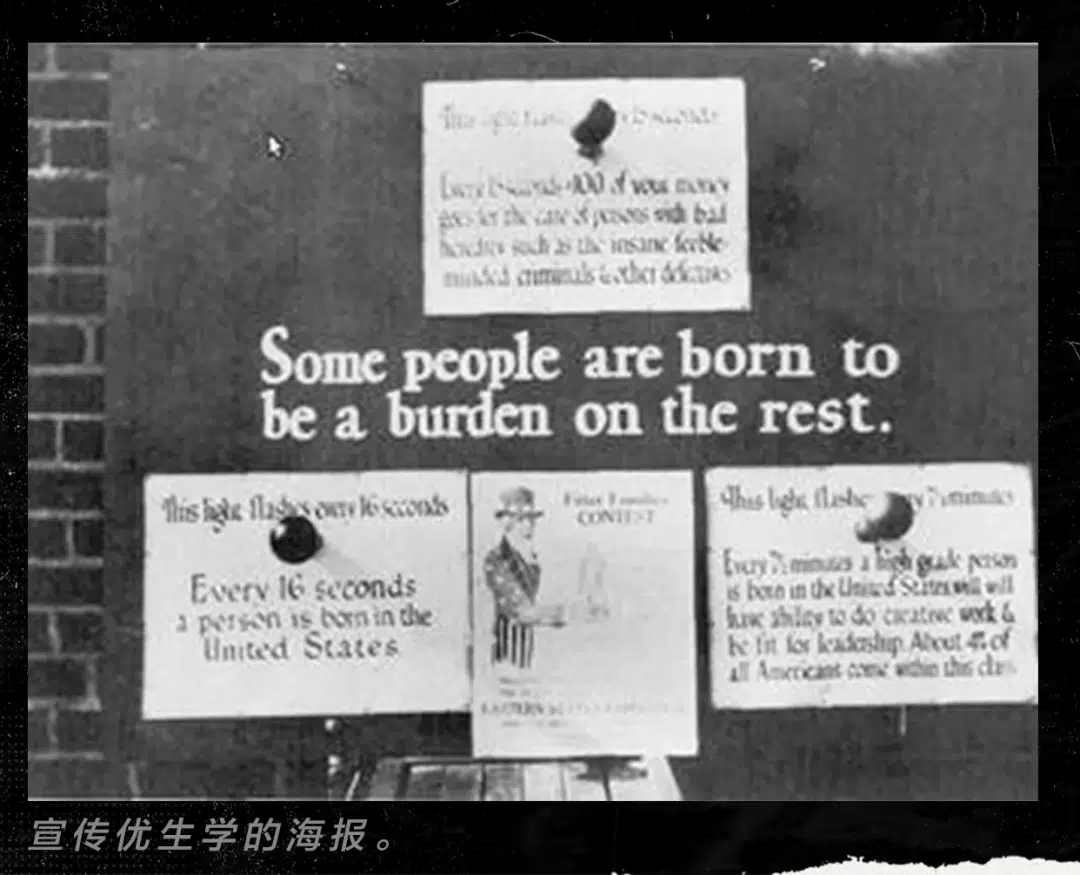 This light flashes every 15 seconds
Every 15 seconds $100 of your money
goes for the care of persons with bad
heredity such as the insane feeble-
minded criminals & other defectives
Some people are born to
be a burden on the rest.
This light flashes every 16 seconds
Every 16 seconds
a person is born in the
United States
Fitter Families
CONTEST
EASTERN STATES EXPOSITION
This light flashes every 7½ minutes
Every 7½ minutes a high grade person
is born in the United States will will
have ability to do creative work &
be fit for leadership. About 4% of
all Americans come within this class
宣传优生学的海报。